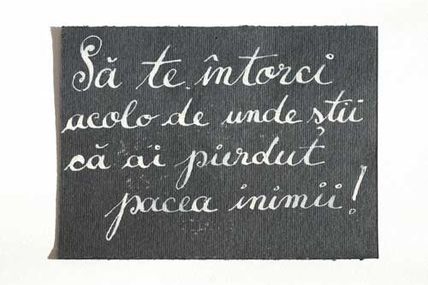 Să te întorci
acolo de unde știi
că ai pierdut
pacea inimii!